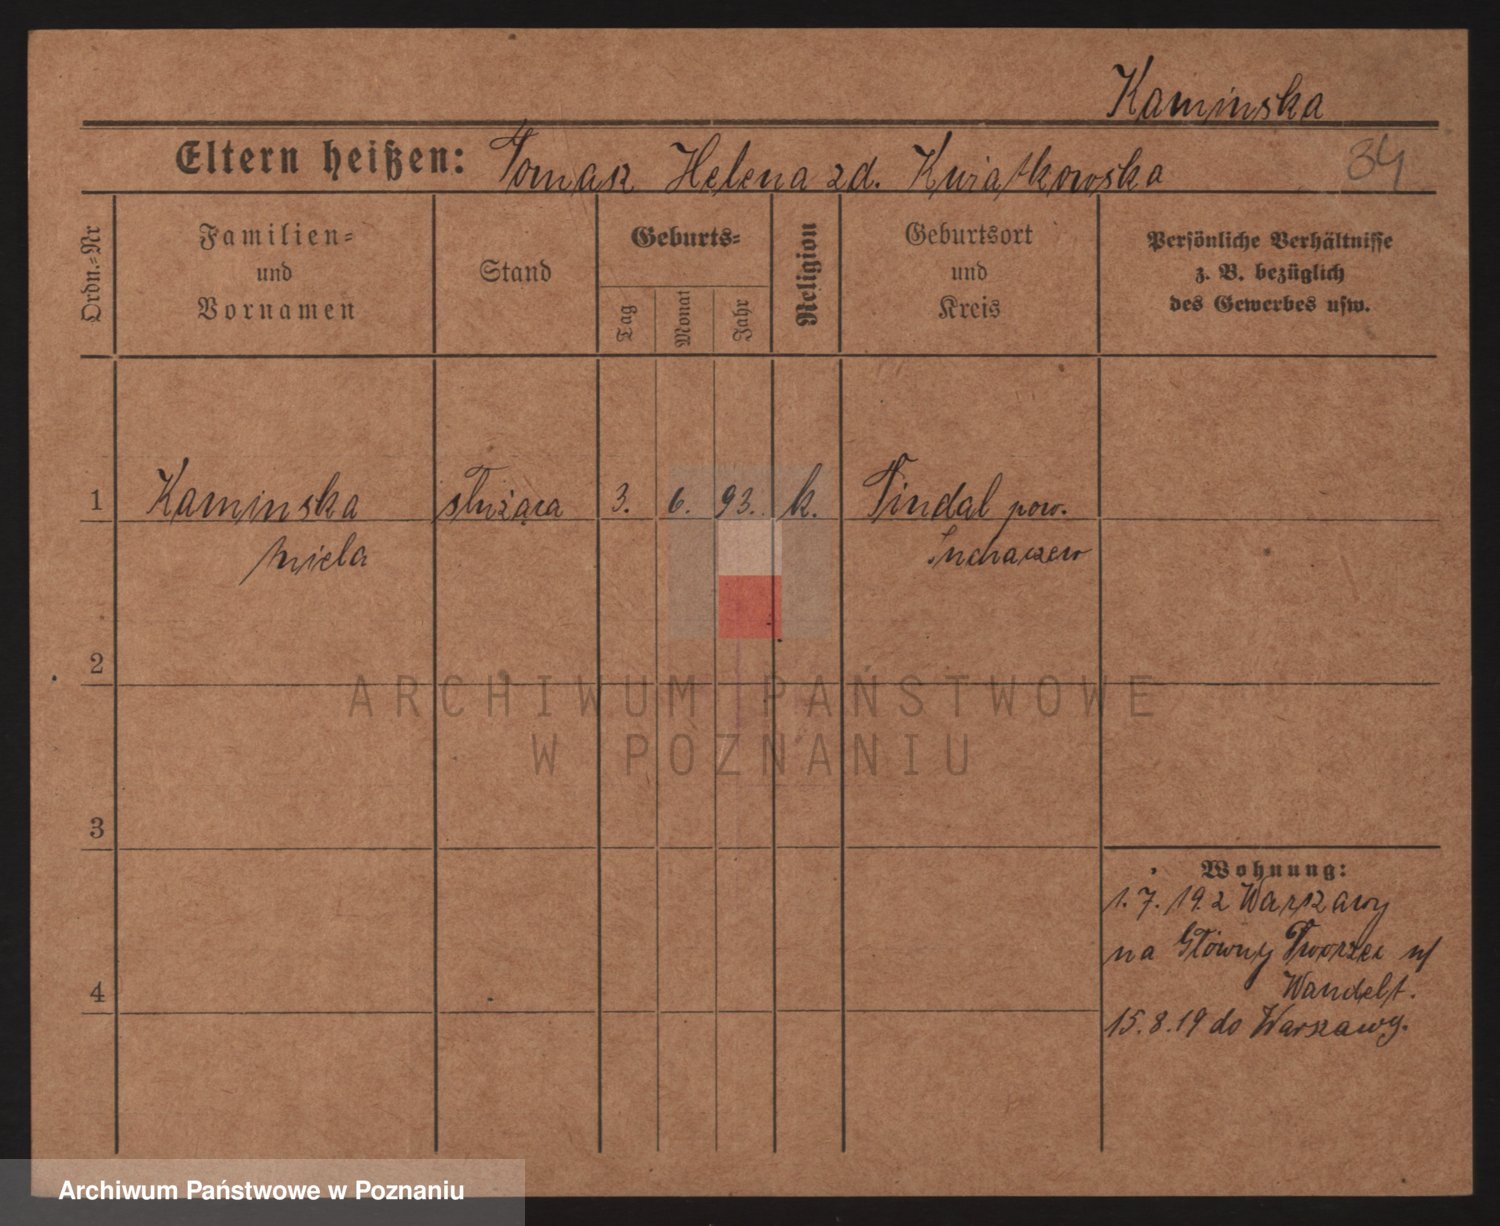 Kaminska
Eltern heißen: Tomasz Helena zd. Kwiatkowska
34
Ordn.=Nr
Familien=
und
Vornamen
Stand
Geburts=
Tag
Monat
Jahr
Religion
Geburtsort
und
Kreis
Persönliche Verhältnisse
z. B. bezüglich
des Gewerbes usw.
1 Kaminska służąca 3. 6. 93. k. Tindal pow.
Sochaczew
2
3
4
Wohnung:
1.7.19 z Warszawy
na Główny Dworzec u/
Wandelt.
15.8.19 do Warszawy.
ARCHIWUM PAŃSTWOWE
W POZNANIU
Archiwum Państwowe w Poznaniu